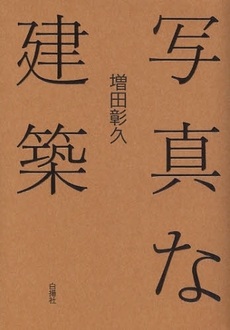 写真な
建築
増田彰久
白揚社